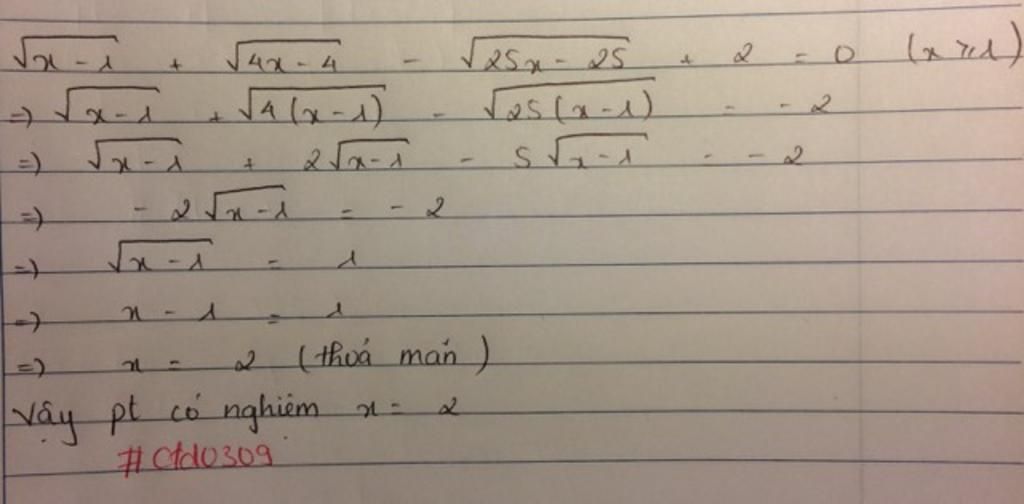 √(x-1) + √(4x-4) - √(25x-25) + 2 = 0 (x ≥ 1)
=> √(x-1) + √(4(x-1)) - √(25(x-1)) = -2
=> √(x-1) + 2√(x-1) - 5√(x-1) = -2
=> -2√(x-1) = -2
=> √(x-1) = 1
=> x - 1 = 1
=> x = 2 (thoả mãn)
Vậy pt có nghiệm x = 2
#ctd0309